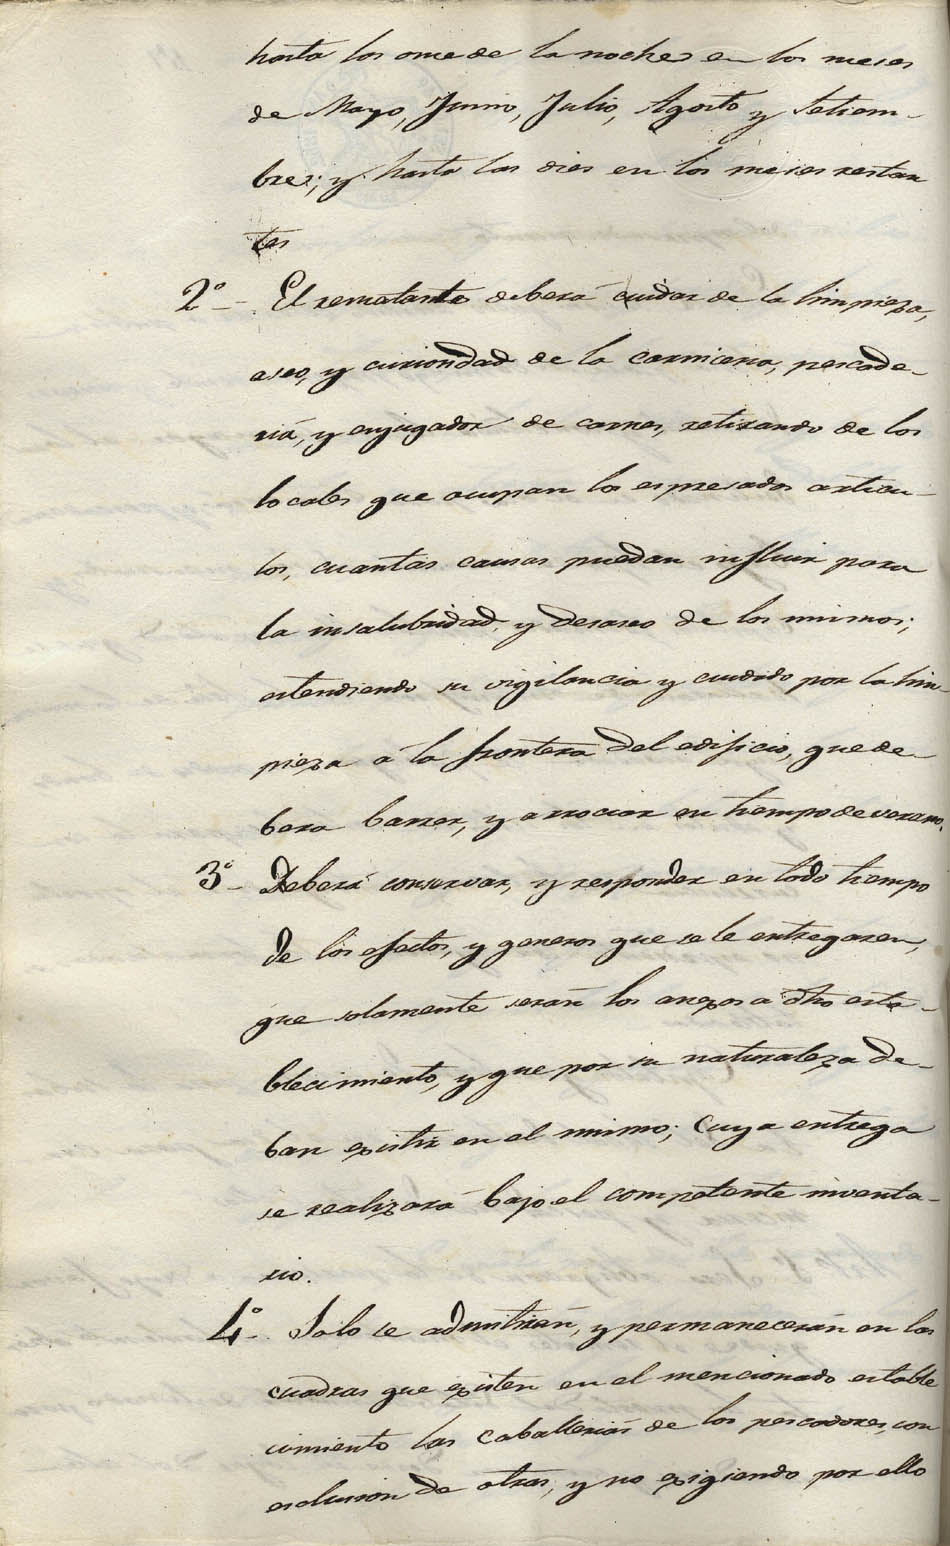 hasta los once de la noche en los meses
de Mayo, Junio, Julio, Agosto y Setiem-
bre; y hasta las dies en los meses restan
tes
2º - El rematante deberá cuidar de la limpieza,
aseo, y curiosidad de la carniceria, pescade-
riá, y enjugador de carnes, retirando de los
locales que ocupan los espresados articu-
los, cuantas causas puedan influir para
la insalubridad, y desaseo de los mismos;
estendiendo su vigilancia y cuidado por la lim-
pieza a la frontera del edificio, que de-
bera barrer, y arrociar en tiempo de verano.
3º - Deberá conservar, y responder en todo tiempo
de los efectos, y generos que se le entregaren,
que solamente serán los anexos a dho esta-
blecimiento, y que por su naturaleza de-
ban existir en el mismo; cuya entrega
se realizará bajo el competente inventa-
rio.
4º - Solo se admitirán, y permanecerán en las
cuadras que existen en el mencionado estable
cimiento las caballeriás de los pescadores, con
esclusion de otras, y no exigiendo por ello